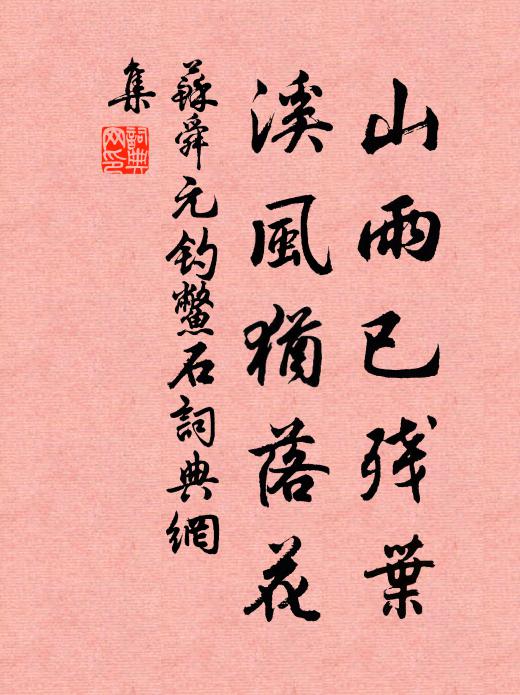 山雨已残葉
溪風猶落花
蘇舜元釣鱉石詞典網
集
詞典
网印